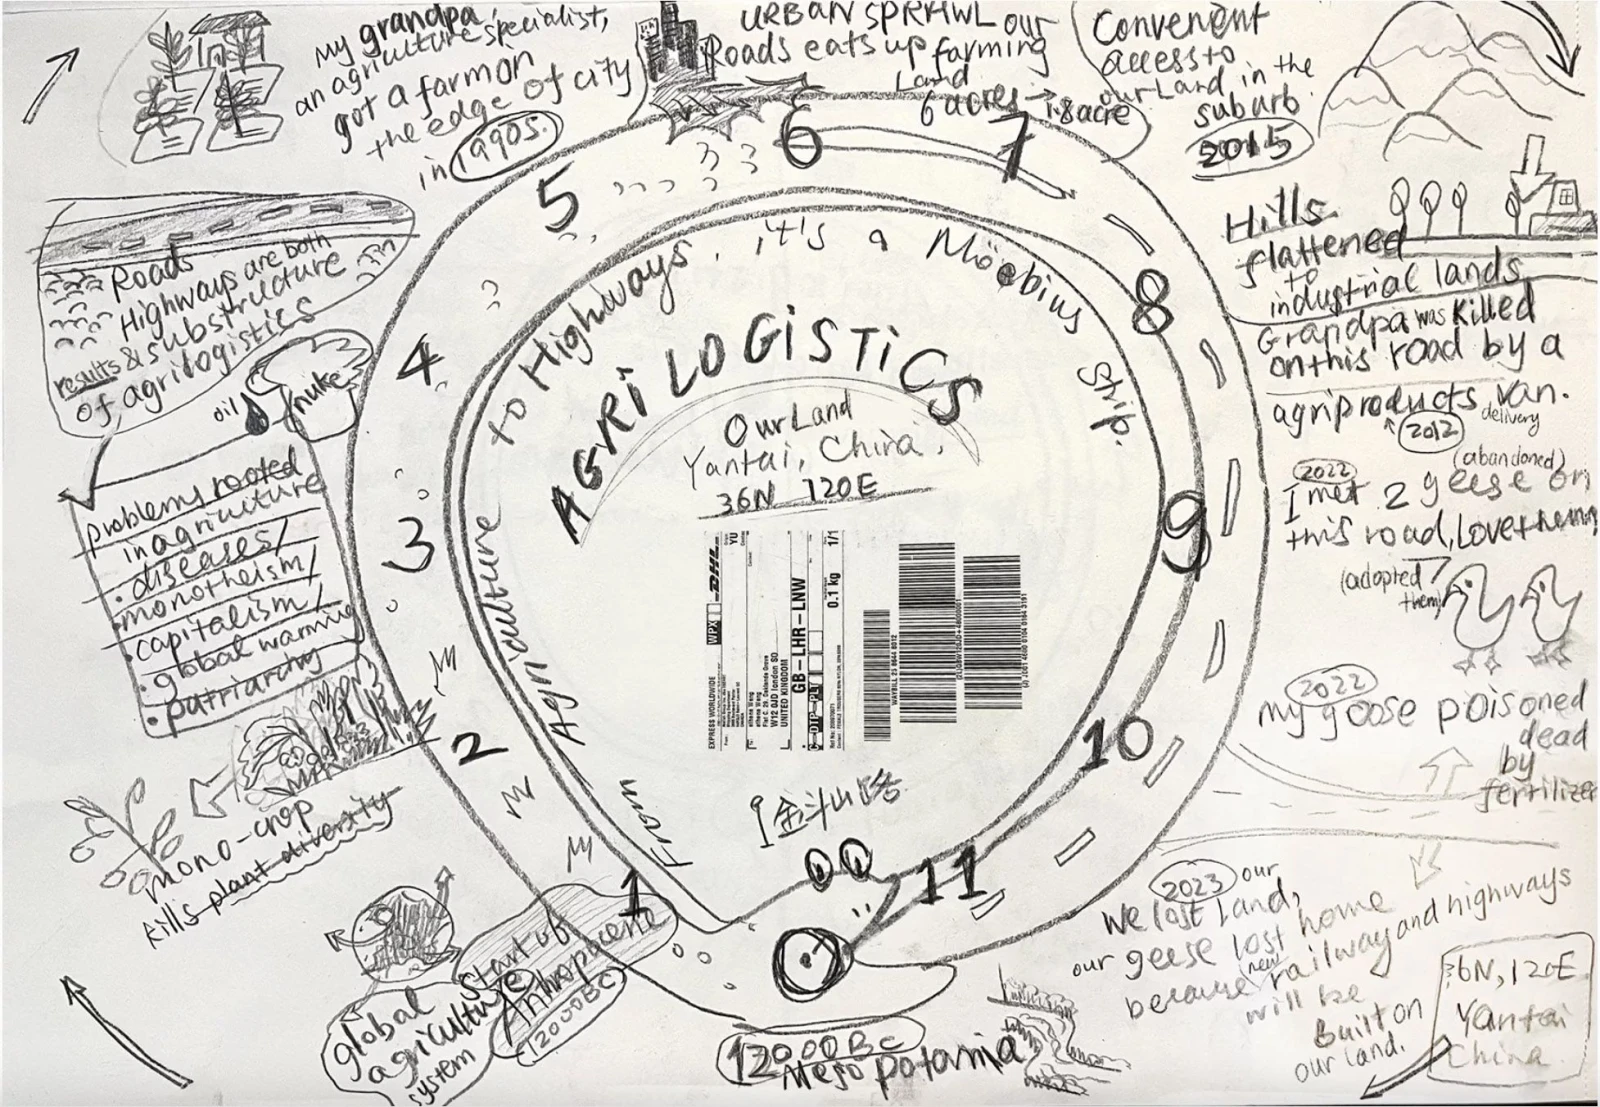 my grandpa,
an agriculture specialist,
got a farm on
the edge of city
in 1990s.
URBAN SPRAWL our
Roads eats up farming
Land
6 acres → 1.8 acre
Convenient
access to
our Land in the
suburb
2015
Roads
Highways are both
results & substructure
of agrilogistics
oil
nuke
problems rooted
in agriculture
• diseases/
• monotheism/
• capitalism/
• global warming
• patriarchy
mono-crop
kills plant diversity
global
agriculture
system
Start of
Anthropocene
12000BC
12000BC
Mesopotamia
1
2
3
4
5
6
7
8
9
10
11
12
From Agriculture to Highways, it's a Möebius Strip.
AGRILOGISTICS
Our Land
Yantai, China,
36N 120E
EXPRESS WORLDWIDE
WPX
DHL
YU
UNITED KINGDOM
GB-LHR-LNW
0.1 kg
1/1
金斗山路
Hills
flattened
to
industrial lands
Grandpa was killed
on this road by a
agriproducts van.
delivery
2012
2022
(abandoned)
I met 2 geese on
this road, Love them
(adopted
them)
2022
my goose poisoned
dead
by
fertilizer
2023
our
We lost land,
our geese lost home
because new railway and highways
will be
Built on
our land.
36N, 120E
Yantai
China